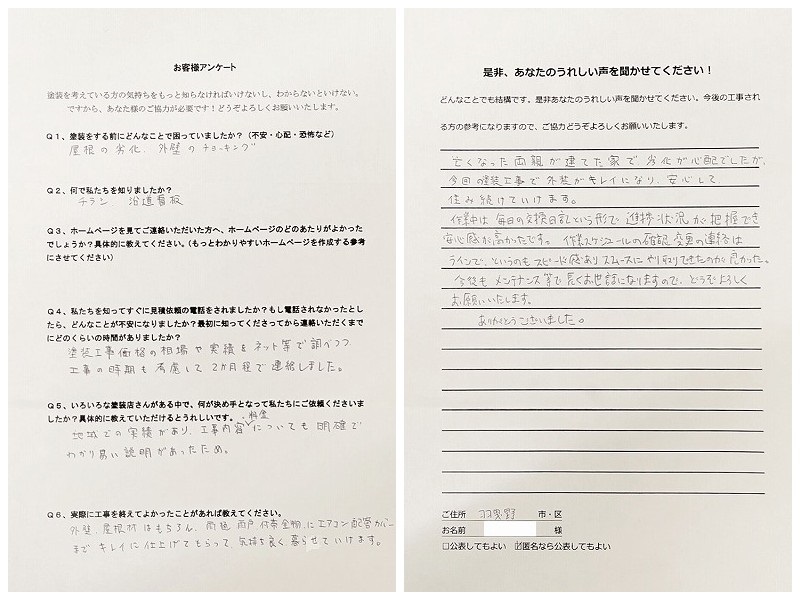 お客様アンケート
塗装を考えている方の気持ちをもっと知らなければいけないし、わからないといけない。
ですから、あなた様のご協力が必要です！どうぞよろしくお願いいたします。
Q1、塗装をする前にどんなことで困っていましたか？（不安・心配・恐怖など）
屋根の劣化、外壁のチョーキング
Q2、何で私たちを知りましたか？
チラシ、沿道看板
Q3、ホームページを見てご連絡いただいた方へ、ホームページのどのあたりがよかった
でしょうか？具体的に教えてください。（もっとわかりやすいホームページを作成する参考
にさせてください）
Q4、私たちを知ってすぐに見積依頼の電話をされましたか？もし電話されなかったとし
たら、どんなことが不安になりましたか？最初に知ってくださってから連絡いただくまで
にどのくらいの時間がありましたか？
塗装工事価格の相場や実績をネット等で調べつつ
工事の時期も考慮して2か月程で連絡しました。
Q5、いろいろな塗装店さんがある中で、何が決め手となって私たちにご依頼くださいま
したか？具体的に教えていただけるとうれしいです。
地域での実績があり、工事内容・料金についても明確で
わかり易い説明があったため。
Q6、実際に工事を終えてよかったことがあれば教えてください。
外壁、屋根材はもちろん、雨樋、雨戸、付帯金物、にエアコン配管カバー
までキレイに仕上げてもらって、気持ち良く暮らせていけます。
是非、あなたのうれしい声を聞かせてください！
どんなことでも結構です。是非あなたのうれしい声を聞かせてください。今後の工事され
る方の参考になりますので、ご協力どうぞよろしくお願いいたします。
亡くなった両親が建てた家で劣化が心配でしたが、
今回の塗装工事で外装がキレイになり、安心して、
住み続けていけます。
作業中は毎日の交換日記という形で進捗状況が把握でき
安心感が高かったです。作業スケジュールの確認、変更の連絡は
ラインで、というのもスピード感ありスムースにやり取りできたのが良かった。
今後もメンテナンス等で長くお世話になりますので、どうぞよろしく
お願いいたします。
ありがとうございました。
ご住所 羽曳野 市・区
お名前 様
□公表してもよい ☑匿名なら公表してもよい